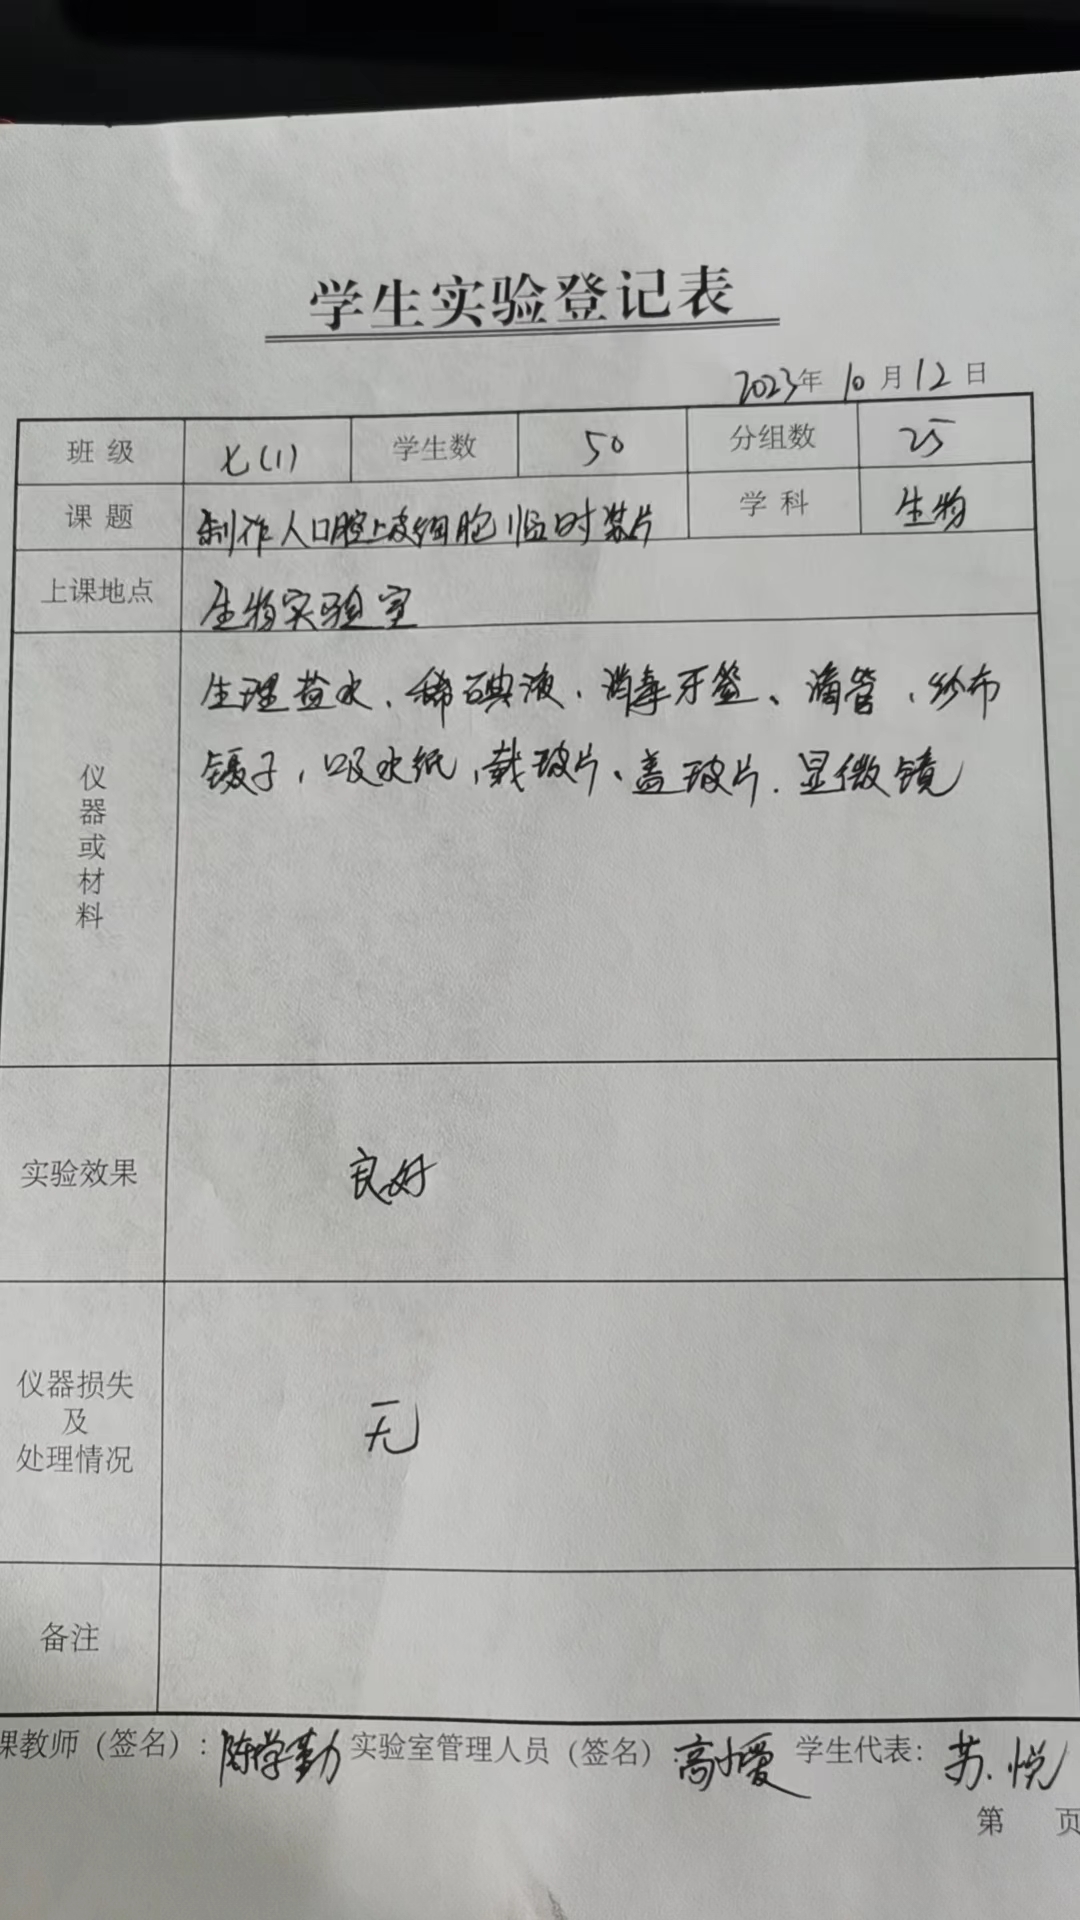 学生实验登记表
2023年 10 月 12 日
班 级 七(1) 学生数 50 分组数 25
课 题 制作人口腔上皮细胞临时装片 学 科 生物
上课地点 生物实验室
仪器或材料
生理盐水、稀碘液、消毒牙签、滴管、纱布
镊子、吸水纸、载玻片、盖玻片、显微镜
实验效果 良好
仪器损失
及
处理情况
无
备注
课教师（签名）: 陈学勤 实验室管理人员（签名）: 高小爱 学生代表: 苏悦
第 页